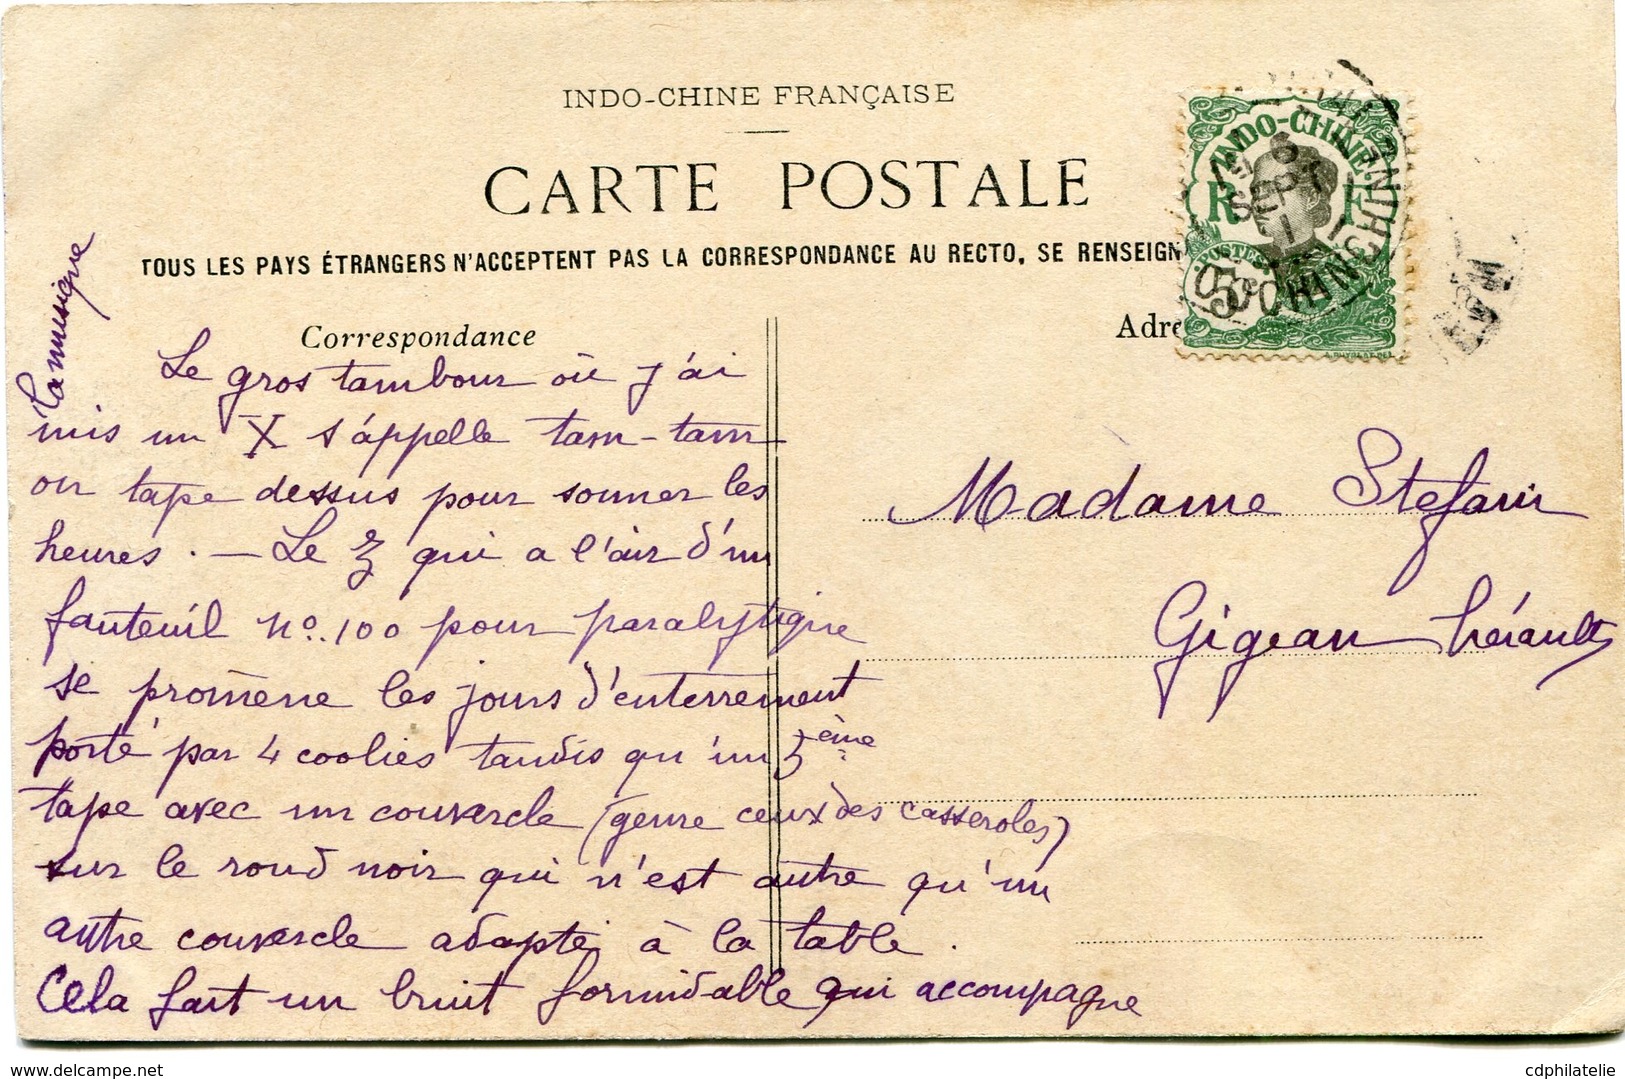 INDO-CHINE FRANÇAISE
CARTE POSTALE
TOUS LES PAYS ÉTRANGERS N'ACCEPTENT PAS LA CORRESPONDANCE AU RECTO, SE RENSEIGN
Correspondance
Adre
INDO-CHINE
R F
POSTES
5
SEPT
Le gros tambour où j'ai
mis un X s'appelle tam-tam
on tape dessus pour sonner les
heures. — Le Z qui a l'air d'un
fauteuil no. 100 pour paralytique
se promène les jours d'enterrement
porté par 4 coolies tandis qu'un 5ème
tape avec un couvercle (genre ceux des casseroles)
sur le rond noir qui n'est autre qu'un
autre couvercle adapté à la table.
Cela fait un bruit formidable qui accompagne
la musique
Madame Stefanin
Gigean Hérault
www.delcampe.net
cdphilatelie